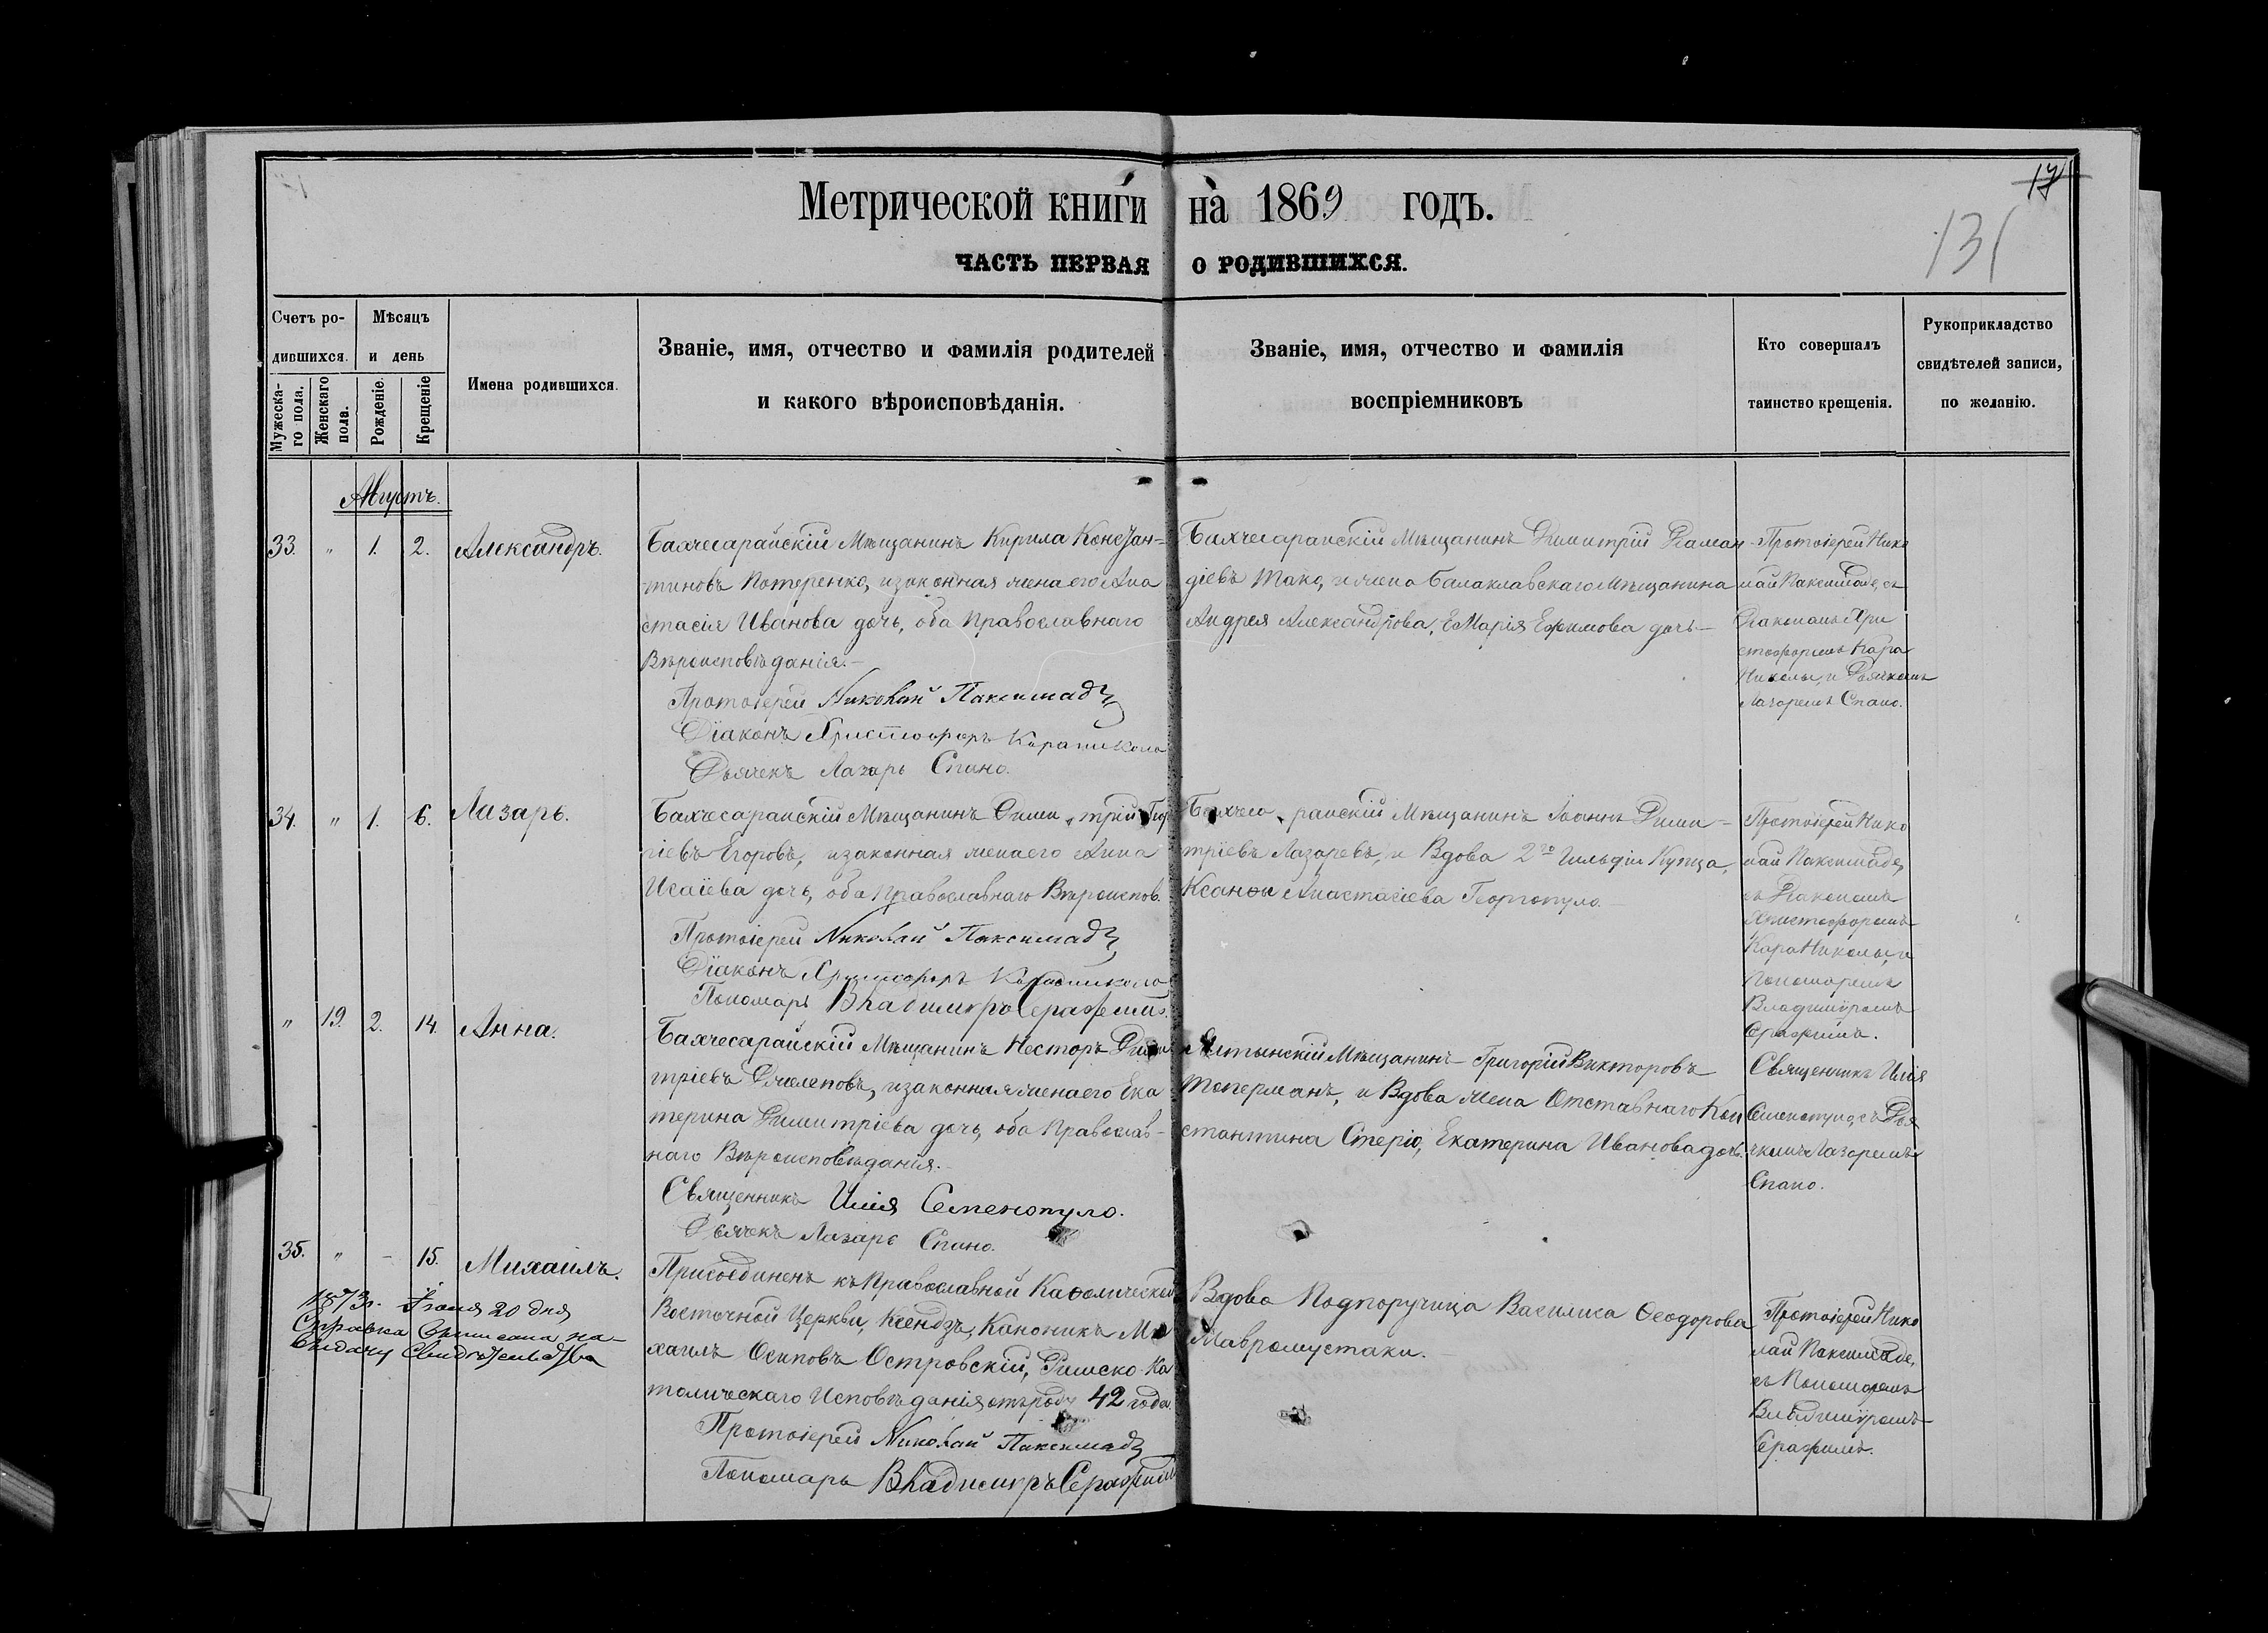 17
131
Метрической книги на 1869 годъ.
ЧАСТЬ ПЕРВАЯ О РОДИВШИХСЯ.
Счетъ ро-
дившихся.
Мужеска-
го пола.
Женскаго
пола.
Мѣсяцъ
и день
Рожденіе.
Крещеніе
Имена родившихся.
Званіе, имя, отчество и фамилія родителей
и какого вѣроисповѣданія.
Званіе, имя, отчество и фамилія
воспріемниковъ
Кто совершалъ
таинство крещенія.
Рукоприкладство
свидѣтелей записи,
по желанію.
Августъ.
33. " 1. 2. Александръ.
Бахчесарайскій Мѣщанинъ Кирила Констан=
тиновъ Потеренко, изаконная жена его Ана
стасія Иванова дочь, оба Православнаго
Вѣроисповѣданія.-
Протоіерей Николай Паксимадъ
Діаконъ Христофоръ Караникола
Дьячекъ Лазарь Спано.
Бахчесарайскій Мѣщанинъ Димитрій
діевъ Тако, и жена Балаклавскаго Мѣщанина
Андрея Александрова, Марія Ефимова дочь-
Протоіерей Нико
лай Паксимаде, съ
Діакономъ Хри
стофоромъ Кара
Николы, и Дьячкомъ
Лазаремъ Спано.
34. " 1. 6. Лазарь.
Бахчесарайскій Мѣщанинъ Дими трій Геор
гіевъ Егоровъ, изаконная жена его Анна
Исаіева дочь, оба Православнаго Вѣроиспов.
Протоіерей Николай Паксимадъ
Діаконъ Христофоръ Караникола
Пономарь Владимиръ Серафимъ.
Бахчеса райскій Мѣщанинъ Іоаннъ Дими=
тріевъ Лазаревъ, и Вдова 2го Гильдіи Купца,
Ксанфи Анастасіева Георгопуло.-
Протоіерей Нико
лай Паксимаде,
съ Діакономъ
Христофоромъ
КараНиколы, и
Пономаремъ
Владиміромъ
Серафимъ.
" 19. 2. 14. Анна.
Бахчесарайскій Мѣщанинъ Несторъ Дими
тріевъ изаконная жена его Ека
терина Димитріева дочь, оба Православ-
наго Вѣроисповѣданія.-
Священникъ Илія Семенопуло.
Дьячекъ Лазарь Спано.
Ялтынскій Мѣщанинъ Григорій Викторовъ
Топерманъ, и Вдова жена Отставнаго Кон
стантина Стеріо, Екатерина Иванова дочь.
Священникъ Илія
Семенопуло, съ Дья
чкомъ Лазаремъ
Спано.
35. " - 15. Михаилъ.
1873г. Іюня 20 дня
Справка Выписана на-
Выдачу Свидѣтельства
Присоединенъ къ Православной Каѳолической
Восточной Церкви, Ксендзъ, Каноникъ Ми
хаилъ Осиповъ Островскій, Римско-Ка
толическаго Исповѣданія отъ роду 42 года.
Протоіерей Николай Паксимадъ
Пономарь Владимиръ Серафимъ
Вдова Подпоручица Василиса Ѳеодорова
Мавромустаки.-
Протоіерей Нико
лай Паксимаде,
съ Пономаремъ
Владиміромъ
Серафимъ.